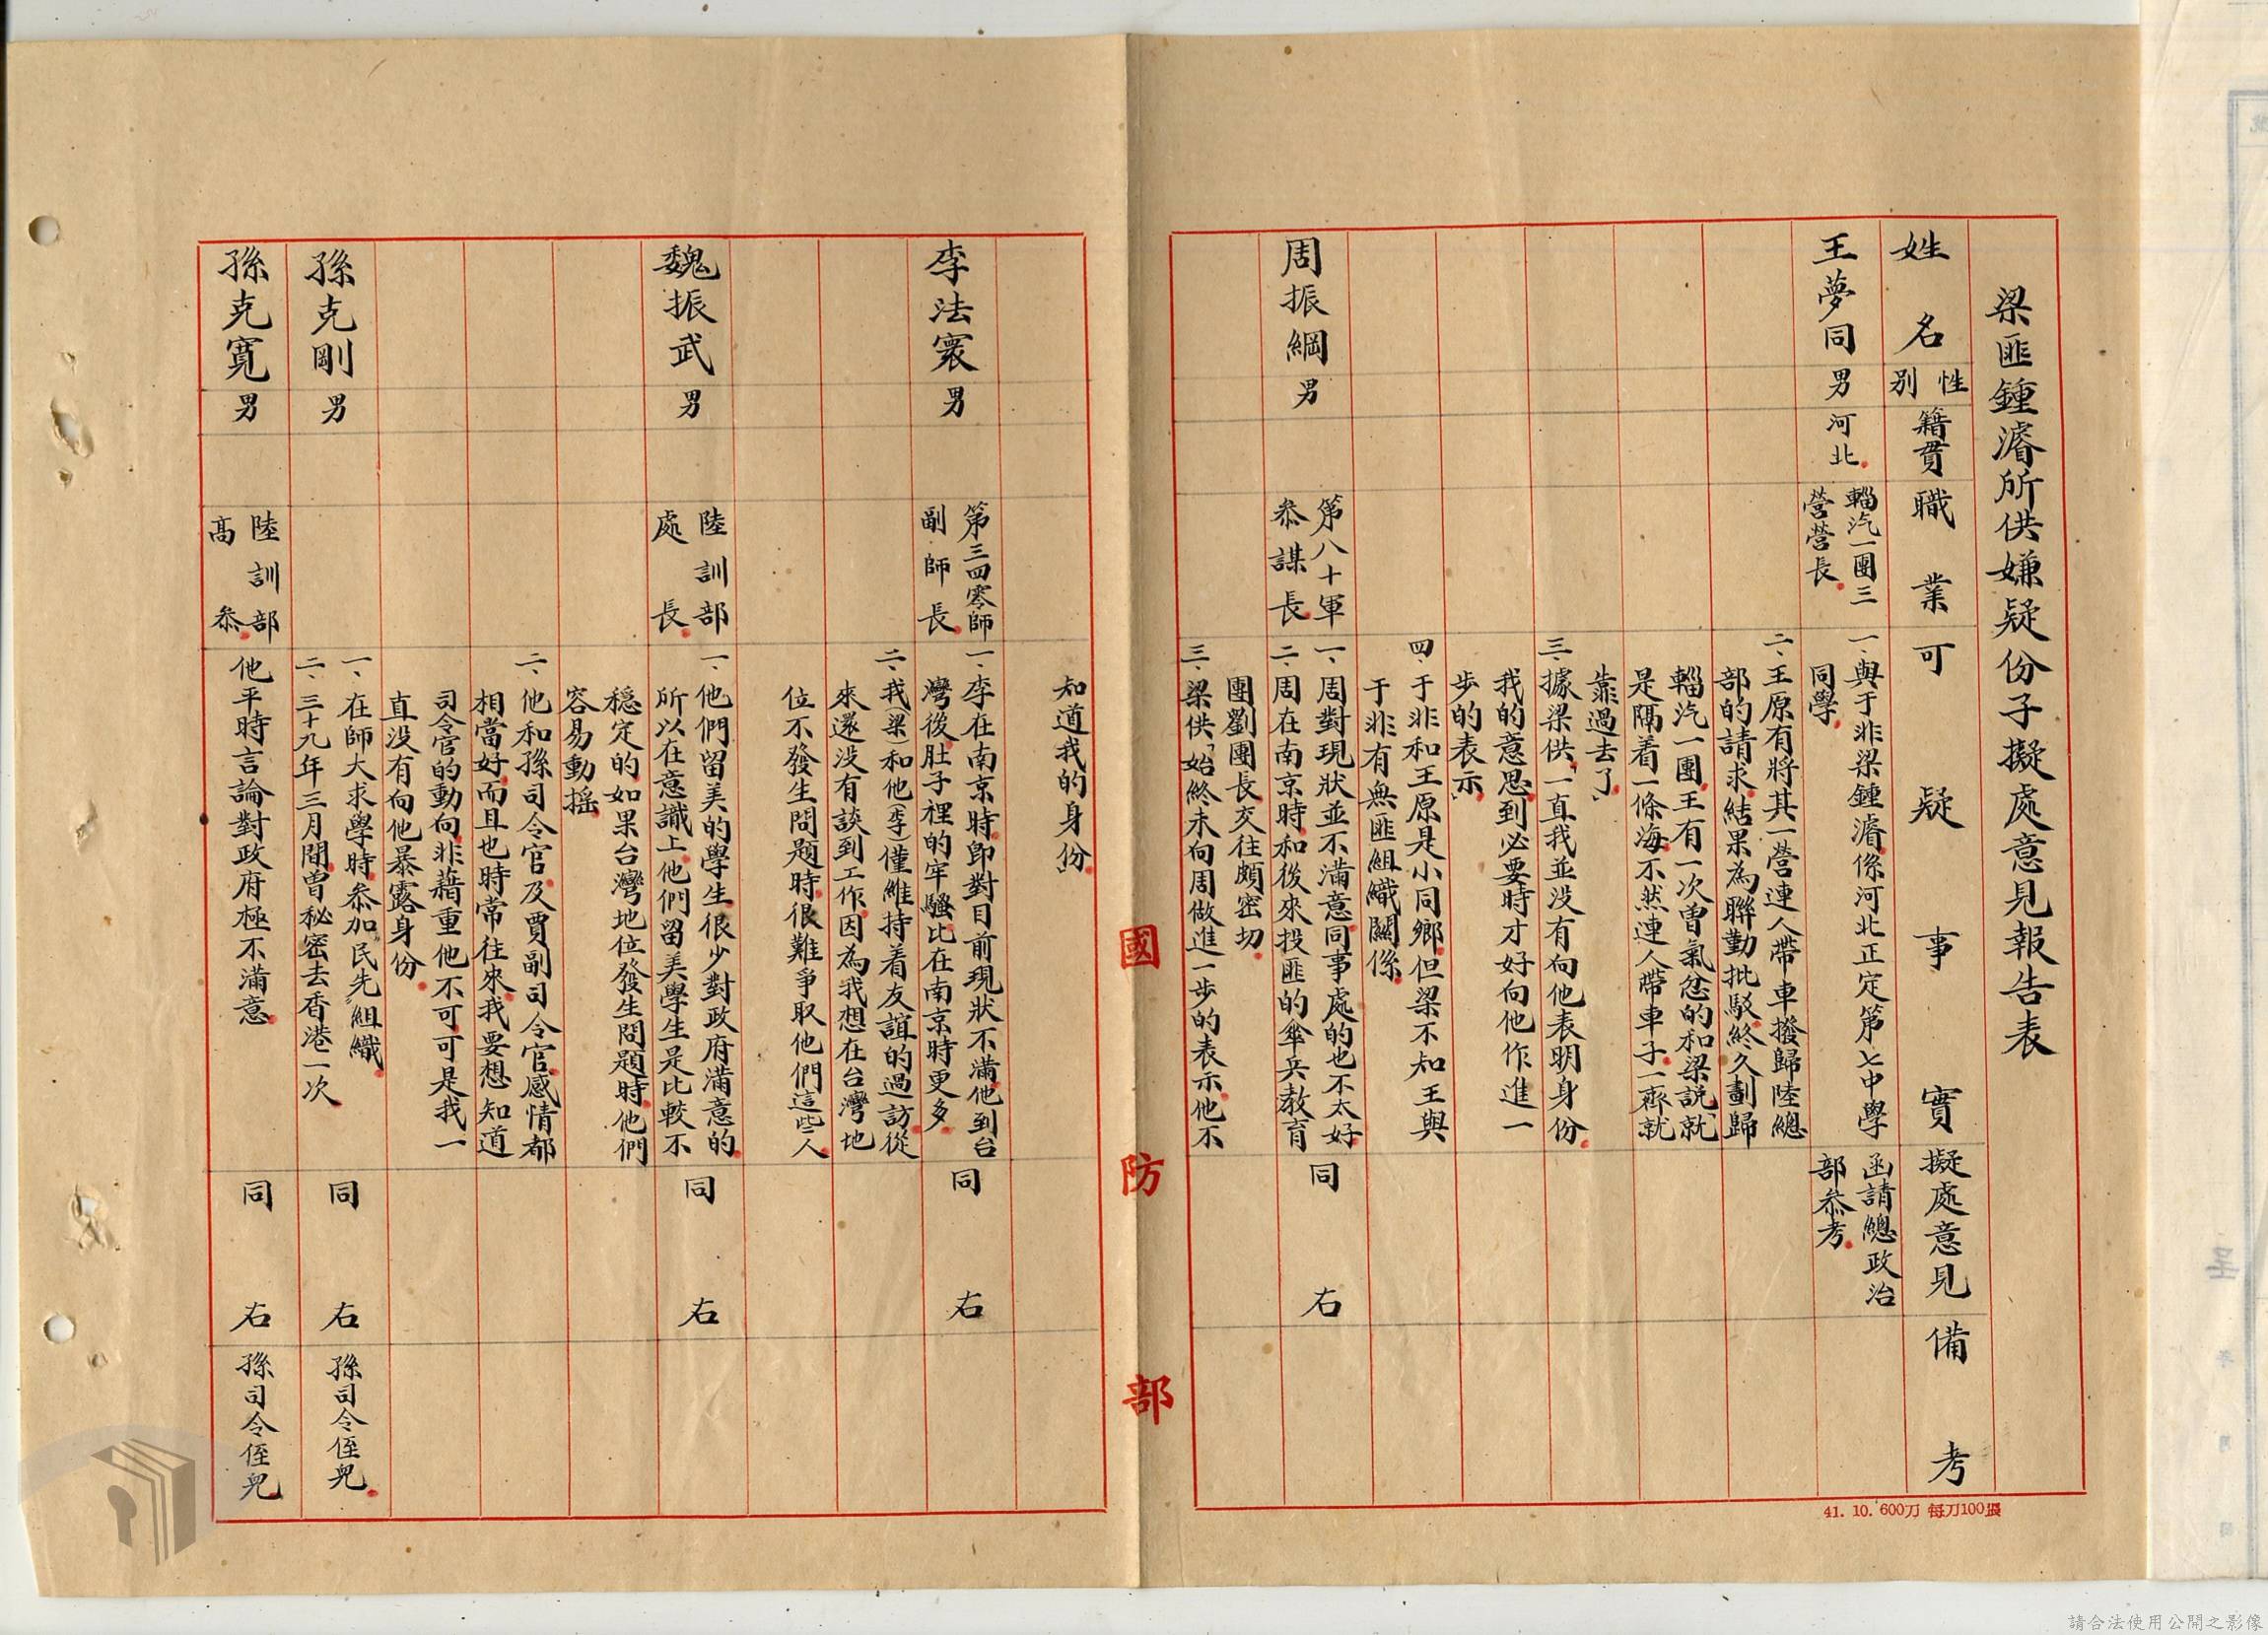 梁匪鍾濬所供嫌疑份子擬處意見報告表
姓名
性別
籍貫
職業
可疑事實
擬處意見
備考
王夢同
男
河北
輜汽一團三
營營長
一、與于非梁鍾濬係河北正定第七中學
同學
二、王原有將其一營連人帶車撥歸陸總
部的請求結果為聯勤批駁終久劃歸
輜汽一團王有一次曾氣忿的和梁説「就
是隔着一條海不然連人帶車子一齊就
靠過去了」
三、據梁供「一直我並没有向他表明身份
我的意思到必要時才好向他作進一
步的表示」
四、于非和王原是小同鄉但梁不知王與
于非有無匪組織關係
函請總政治
部叅考
周振綱
男
第八十軍
叅謀長
一、周對現狀並不滿意同事處的也不太好
二、周在南京時和後來投匪的傘兵教育
團劉團長交往頗密切
三、梁供「始終未向周做進一步的表示他不
知道我的身份」
同右
國防部
李法寰
男
第三四零師
副師長
一、李在南京時卽對目前現狀不滿他到台
灣後肚子裡的牢騷比在南京時更多
二、我(梁)和他(李)僅維持着友誼的過訪從
來還没有談到工作因為我想在台灣地
位不發生問題時很難爭取他們這些人
同右
魏振武
男
陸訓部
處長
一、他們留美的學生很少對政府滿意的
所以在意識上他們留美學生是比較不
穩定的如果台灣地位發生問題時他們
容易動搖
二、他和孫司令官及賈副司令官感情都
相當好而且也時常往來我要想知道
司令官的動向非藉重他不可可是我一
直没有向他暴露身份
同右
孫克剛
男
一、在師大求學時叅加民先組織
二、三十九年三月間曾秘密去香港一次
同右
孫司令侄兒
孫克寬
男
陸訓部
高叅
他平時言論對政府極不滿意
同右
孫司令侄兒
41. 10. 600刀 每刀100張
請合法使用公開之影像